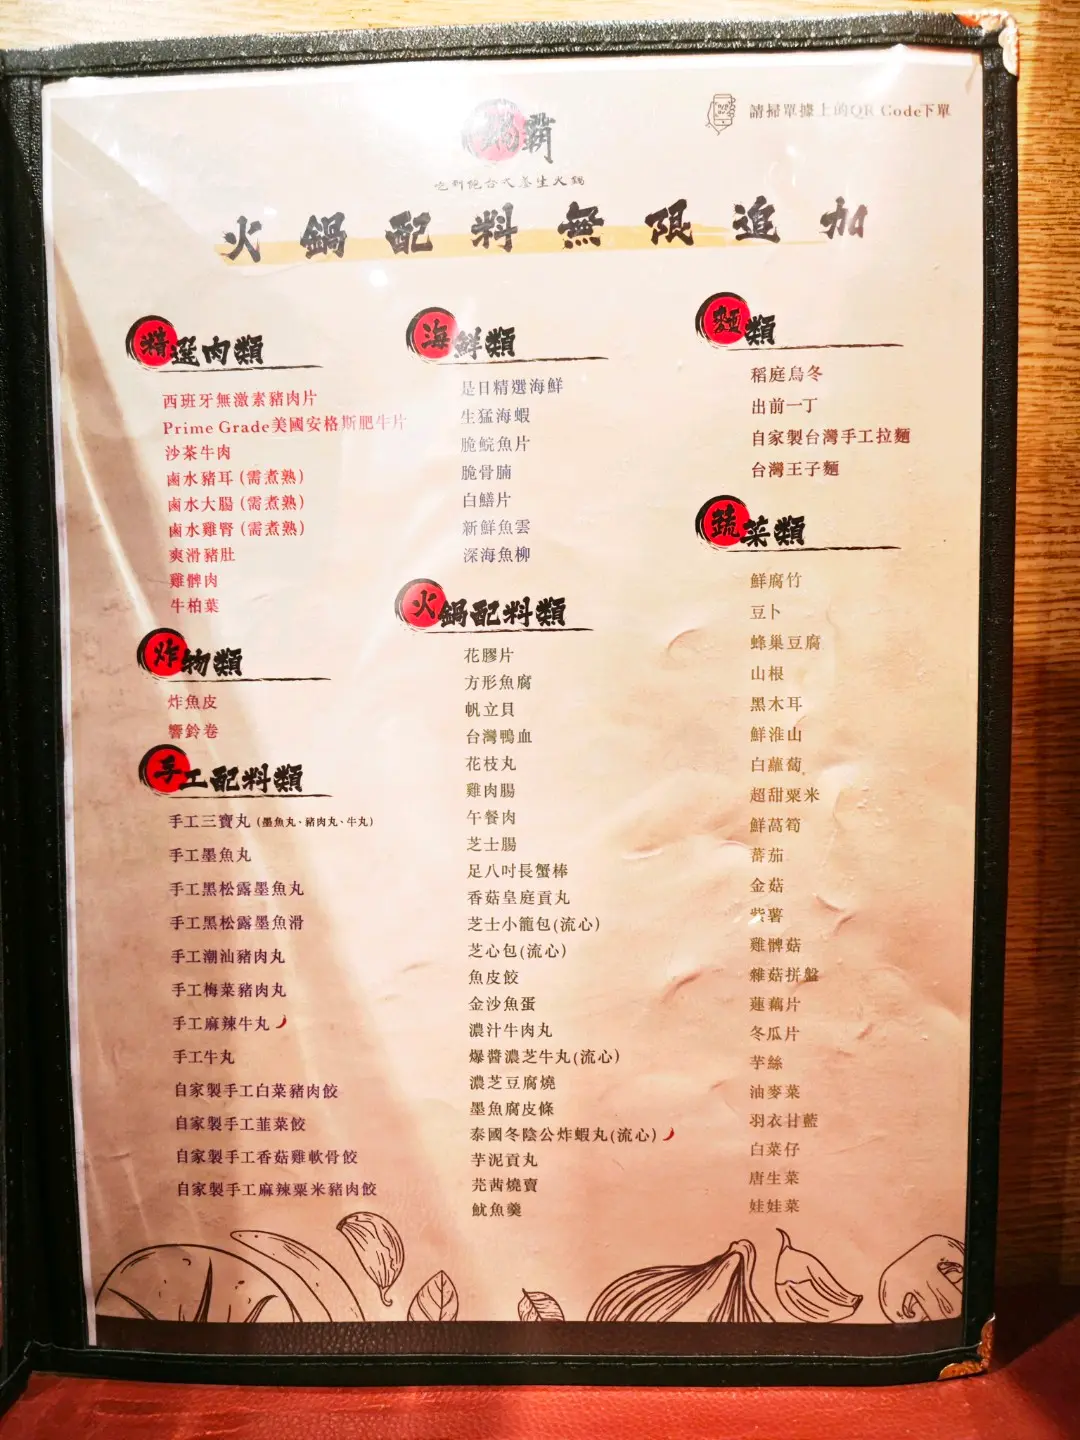 請掃單據上的QR Code下單
鍋霸
吃到飽台式養生火鍋
火鍋配料無限追加
精選肉類
西班牙無激素豬肉片
Prime Grade美國安格斯肥牛片
沙茶牛肉
鹵水豬耳（需煮熟）
鹵水大腸（需煮熟）
鹵水雞腎（需煮熟）
爽滑豬肚
雞髀肉
牛柏葉
炸物類
炸魚皮
響鈴卷
手工配料類
手工三寶丸（墨魚丸、豬肉丸、牛丸）
手工墨魚丸
手工黑松露墨魚丸
手工黑松露墨魚滑
手工潮汕豬肉丸
手工梅菜豬肉丸
手工麻辣牛丸
手工牛丸
自家製手工白菜豬肉餃
自家製手工韮菜餃
自家製手工香菇雞軟骨餃
自家製手工麻辣粟米豬肉餃
海鮮類
是日精選海鮮
生猛海蝦
脆鯇魚片
脆骨腩
白鱔片
新鮮魚雲
深海魚柳
火鍋配料類
花膠片
方形魚腐
帆立貝
台灣鴨血
花枝丸
雞肉腸
午餐肉
芝士腸
足八吋長蟹棒
香菇皇庭貢丸
芝士小籠包(流心)
芝心包(流心)
魚皮餃
金沙魚蛋
濃汁牛肉丸
爆醬濃芝牛丸(流心)
濃芝豆腐燒
墨魚腐皮條
泰國冬陰公炸蝦丸(流心)
芋泥貢丸
芫茜燒賣
魷魚羹
麵類
稻庭烏冬
出前一丁
自家製台灣手工拉麵
台灣王子麵
蔬菜類
鮮腐竹
豆卜
蜂巢豆腐
山根
黑木耳
鮮淮山
白蘿蔔
超甜粟米
鮮萵筍
蕃茄
金菇
紫薯
雞髀菇
雜菇拼盤
蓮藕片
冬瓜片
芋絲
油麥菜
羽衣甘藍
白菜仔
唐生菜
娃娃菜